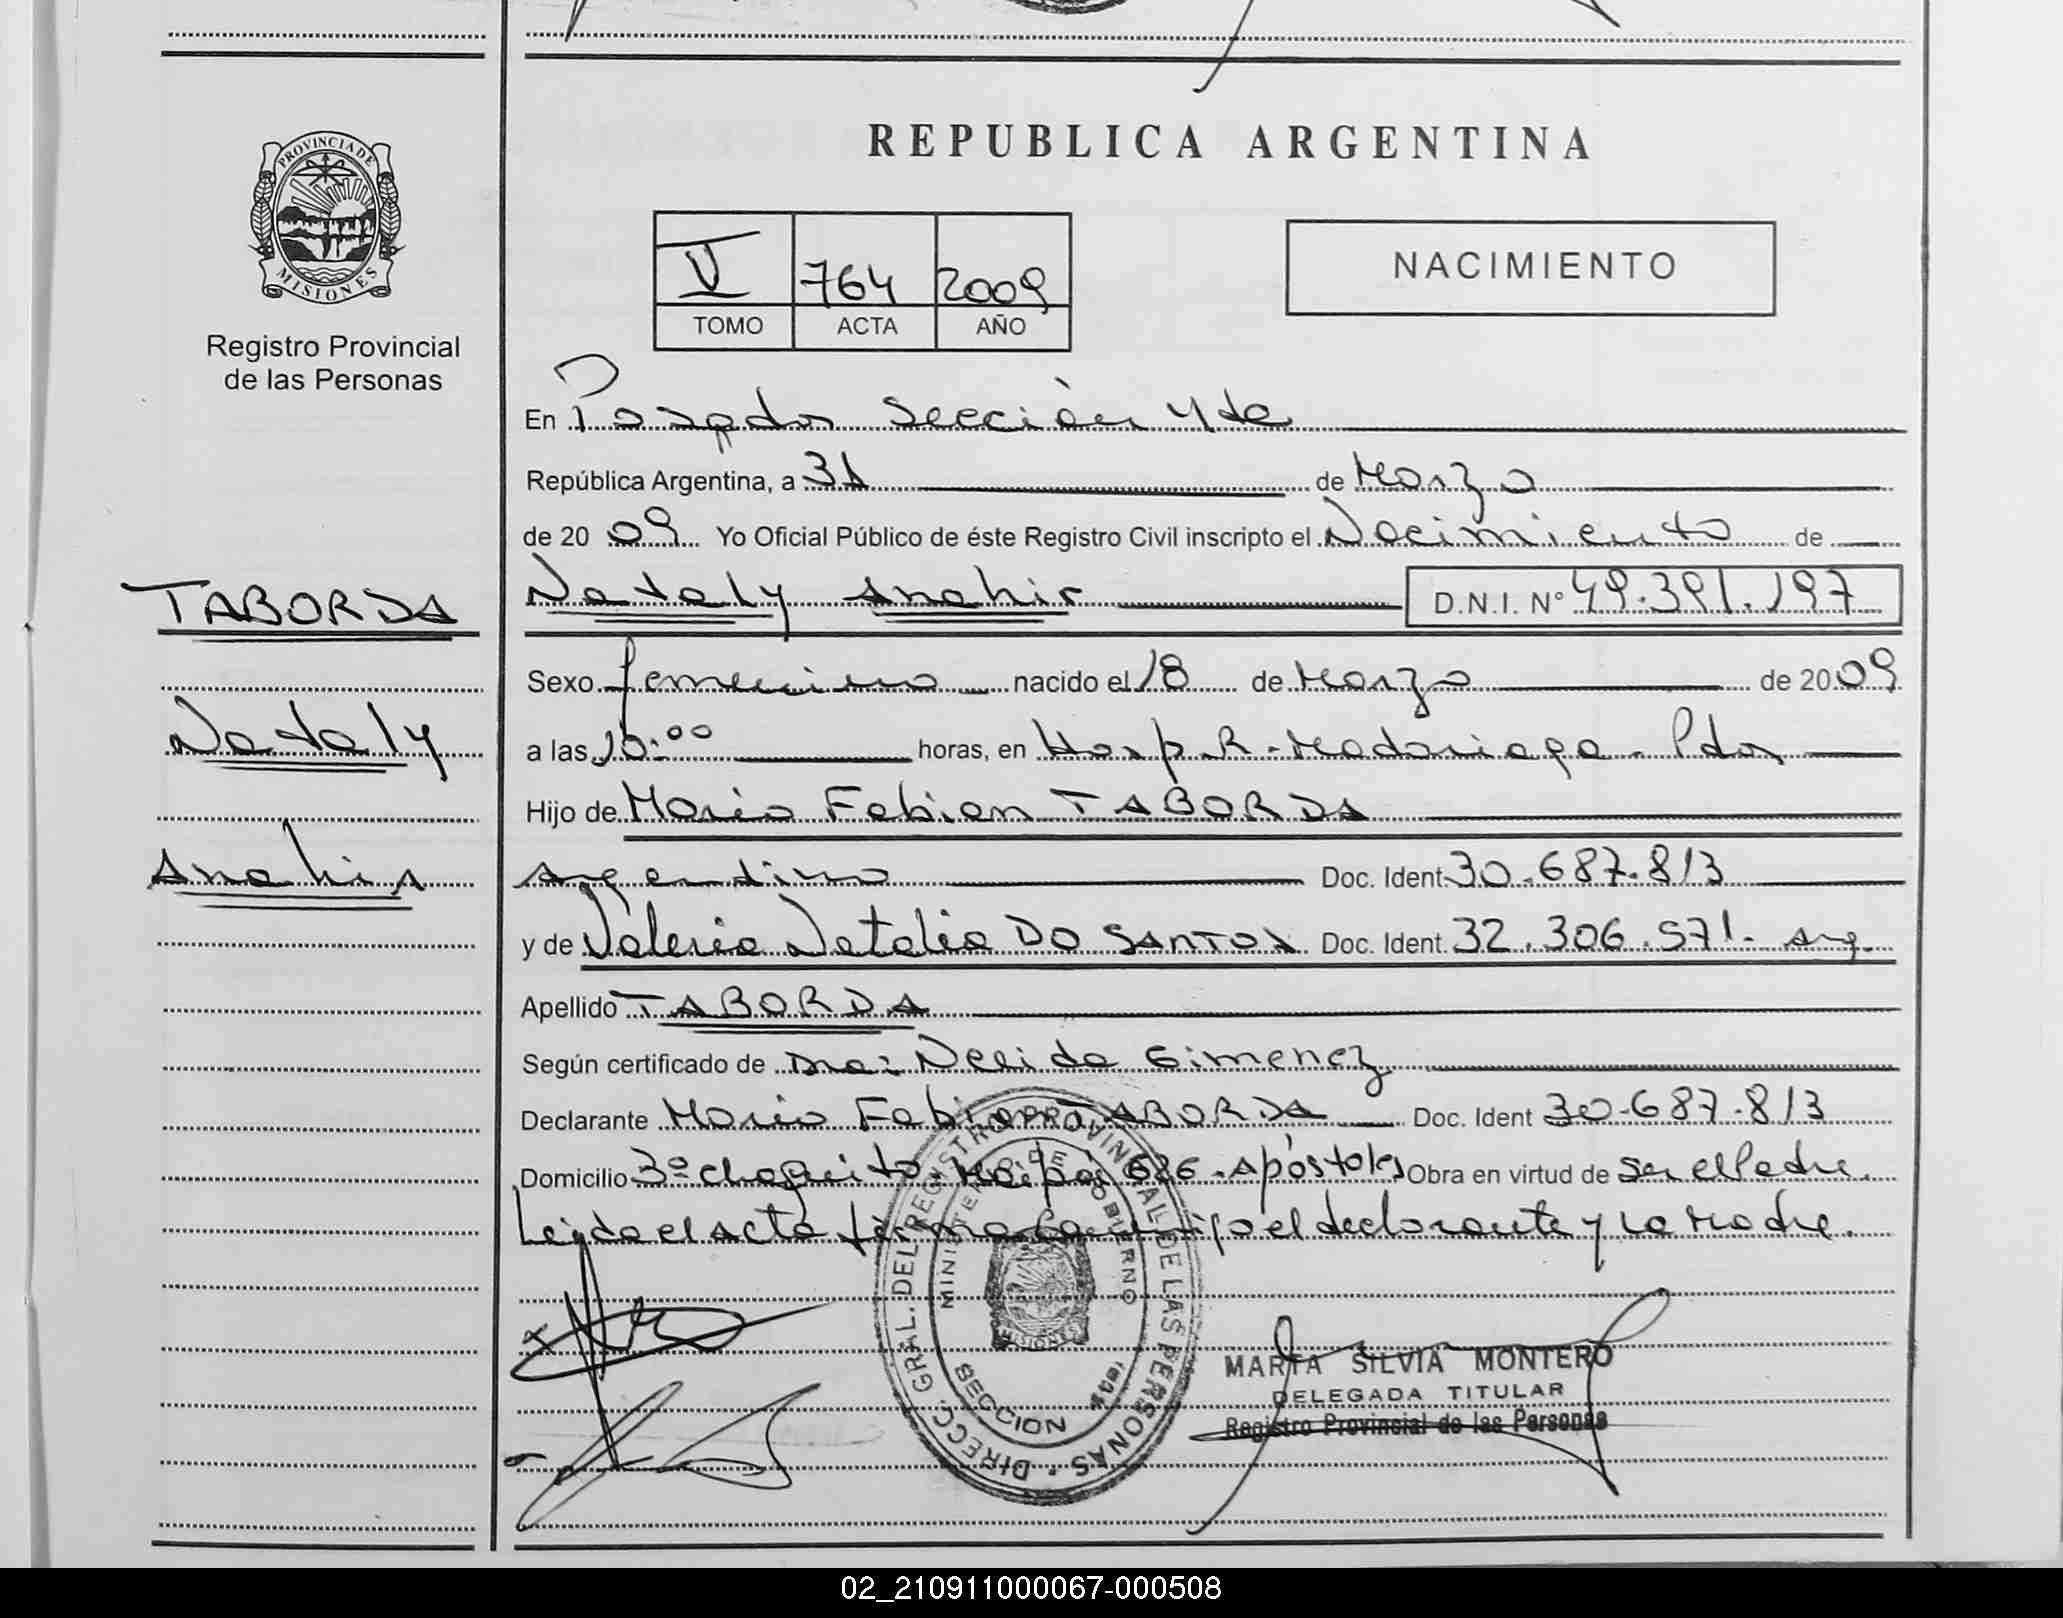 PROVINCIA DE
MISIONES
Registro Provincial
de las Personas
TABORDA
Nataly
Anahir
REPUBLICA ARGENTINA
V 764 2009
TOMO ACTA AÑO
NACIMIENTO
En Posadas Sección 4ta
República Argentina, a 31 de Marzo
de 2009 Yo Oficial Público de éste Registro Civil inscripto el Nacimiento de
Nataly Anahir D.N.I. N° 49.391.197
Sexo femenino nacido el 18 de Marzo de 2009
a las 10:00 horas, en Hosp. R. Madariaga - Pdas
Hijo de Mario Fabian TABORDA
Argentino Doc. Ident. 30.687.813
y de Valeria Natalia DO SANTOS Doc. Ident. 32.306.571. Arg.
Apellido TABORDA
Según certificado de Dra: Nelida Gimenez
Declarante Mario Fabian TABORDA Doc. Ident 30.687.813
Domicilio 3º chaquito. Maipú 686. Apóstoles Obra en virtud de Ser el Padre.
Leída el acta firma conmigo el declarante y la Madre.
DIRECC. GRAL. DEL REGISTRO PROVINCIAL DE LAS PERSONAS
MINISTERIO DE GOBIERNO
MISIONES
SECCION
MARTA SILVIA MONTERO
DELEGADA TITULAR
Registro Provincial de las Personas
02_210911000067-000508